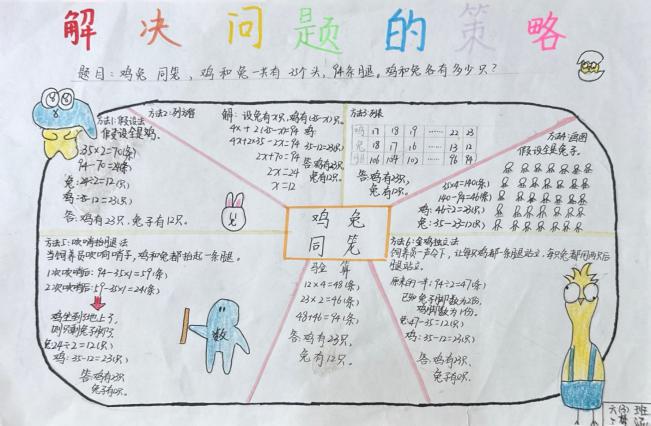 解决问题的策略
题目：鸡兔同笼，鸡和兔一共有35个头，94条腿，鸡和兔各有多少只？
方法1：假设法
假设全是鸡。
35×2=70(条)
94-70=24(条)
兔：24÷2=12(只)
鸡：35-12=23(只)
答：鸡有23只，兔子有12只。
方法2：列方程
解：设兔有x只，鸡有(35-x)只。
4x+2(35-x)=94
4x+2×35-2x=94
2x+70=94
2x=24
x=12
鸡：
35-12=23(只)
答：鸡有23只
兔有12只。
方法3：列表
鸡 17 18 19 …… 22 23
兔 18 17 16 …… 13 12
腿 106 104 102 …… 96 94
答：鸡有23只，
兔有12只。
方法4：画图
假设全是兔子。
35×4=140(条)
140-94=46(条)
鸡：46÷2=23(只)
兔：35-23=12(只)
鸡兔
同笼
方法5：吹哨抬腿法
当饲养员吹响哨子，鸡和兔都抬起一条腿。
1次吹哨后：94-35×1=59(条)
2次吹哨后：59-35×1=24(条)
鸡坐到地上了，
则只剩兔子脚了
兔：24÷2=12(只)
鸡：35-12=23(只)
答：鸡有23只
兔子有12只。
数
验算
12×4=48(条)
23×2=46(条)
48+46=94(条)
答：鸡有23只，
兔有12只。
方法6：金鸡独立法
饲养员一声令下，让每只鸡都一条腿站立，每只兔都用两只后
腿站立。
原来的一半：94÷2=47(条)
兔：47-35=12(只)
鸡：35-12=23(只)
答：鸡有23只，
兔有12只。